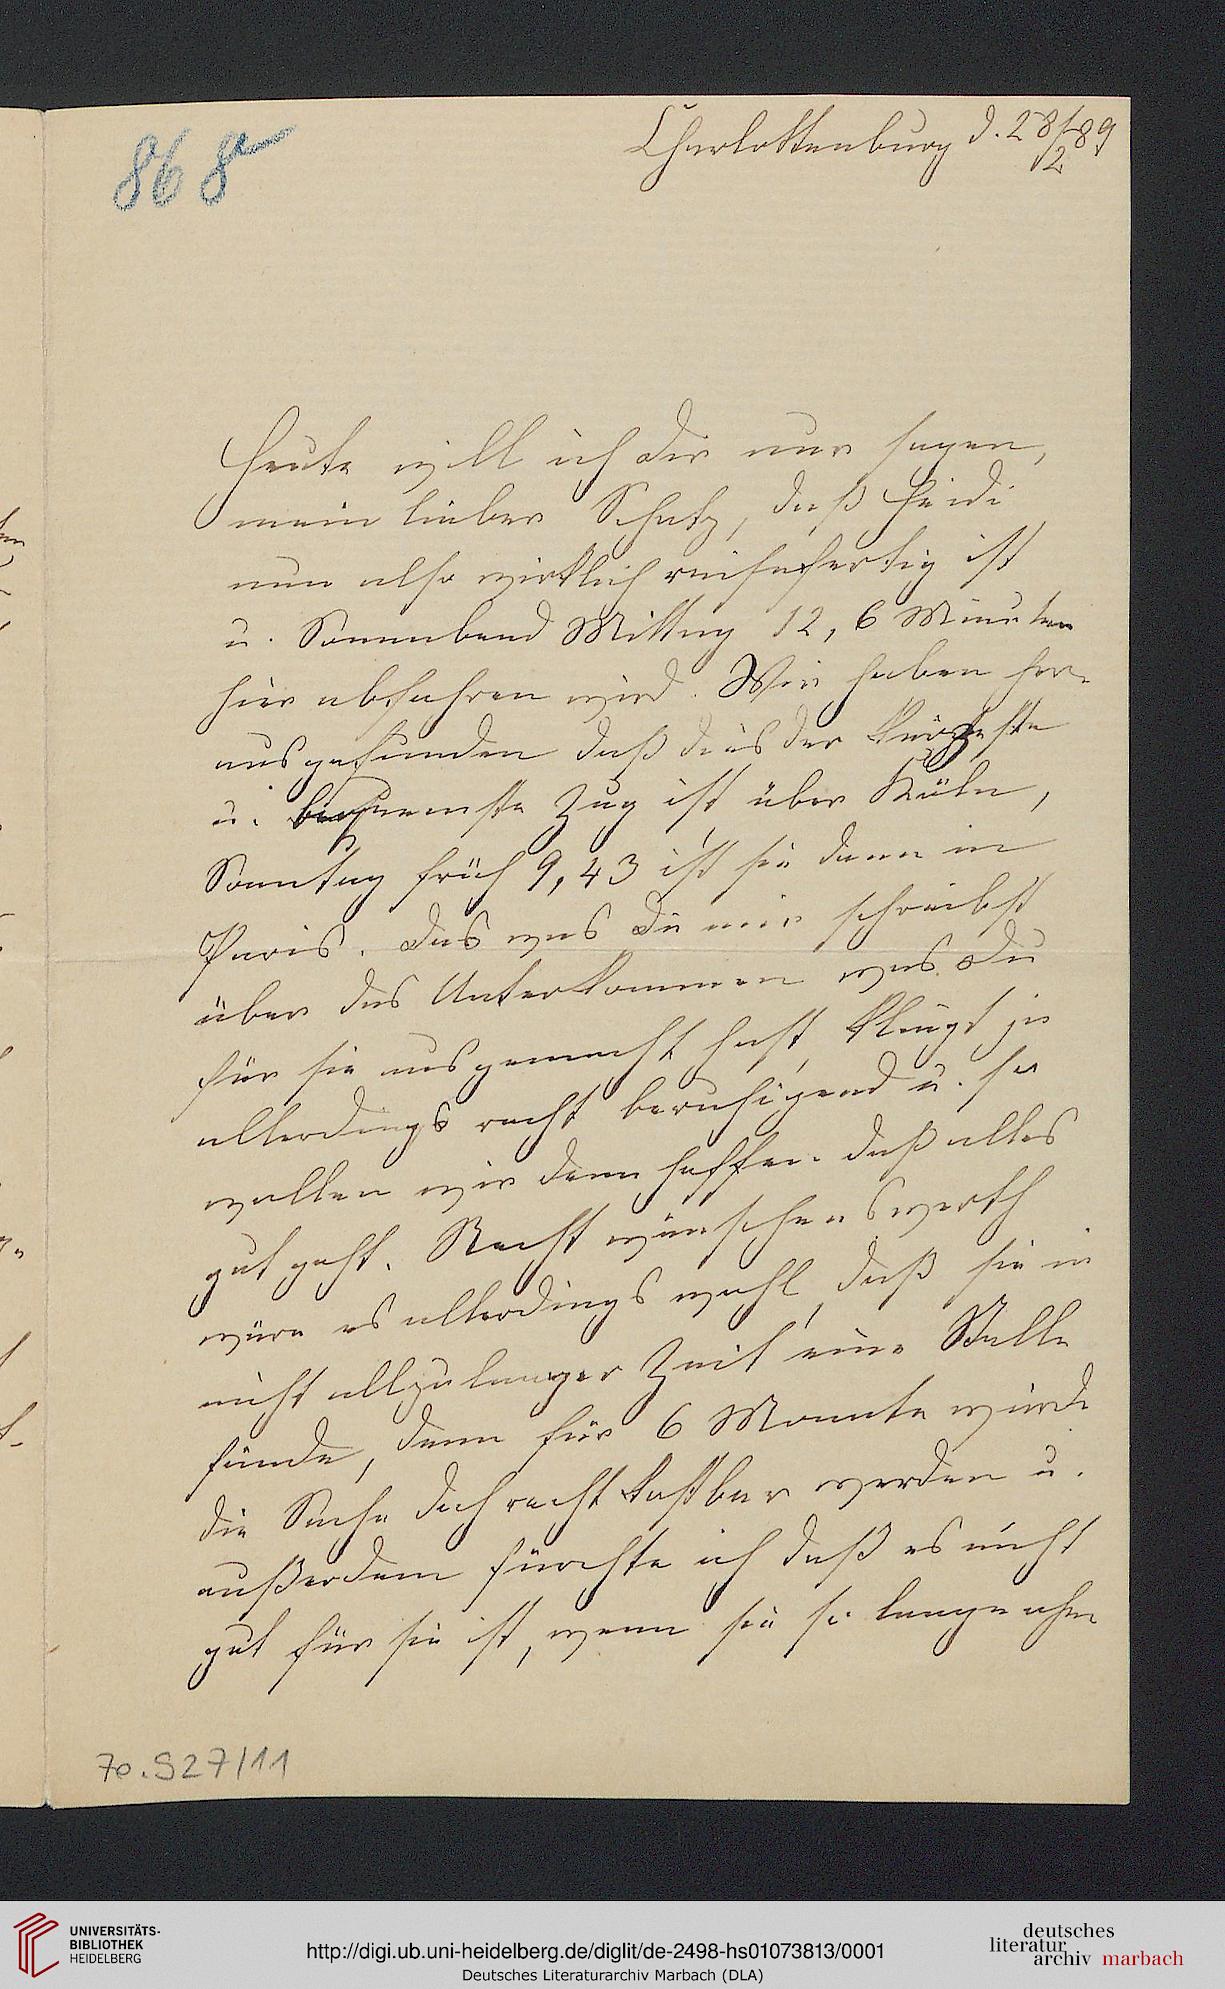 868
Charlottenburg d. 28/2 89
Heute will ich Dir nur sagen,
mein lieber Schatz, daß Heidi
nun also wirklich reisefertig ist
u. Sonnabend Mittag 12, 6 Minuten
hier abfahren wird. Wir haben her-
ausgefunden daß dies der kürzeste
u. bequemste Zug ist über Köln,
Sonntag früh 9,43 ist sie dann in
Paris. Das was Du mir schreibst
über das Unterkommen was Du
für sie ausgemacht hast, klingt ja
allerdings recht beruhigend u. so
wollen wir denn hoffen daß alles
gut geht. Recht wünschenswerth
wäre es allerdings wohl, daß sie in
nicht allzulanger Zeit eine Stelle
fände, denn für 6 Monate würde
die Sache doch recht kostbar werden u.
außerdem fürchte ich daß es nicht
gut für sie ist, wenn sie so lange ohne
70.927/11
UNIVERSITÄTS-
BIBLIOTHEK
HEIDELBERG
http://digi.ub.uni-heidelberg.de/diglit/de-2498-hs01073813/0001
Deutsches Literaturarchiv Marbach (DLA)
deutsches
literatur
archiv marbach